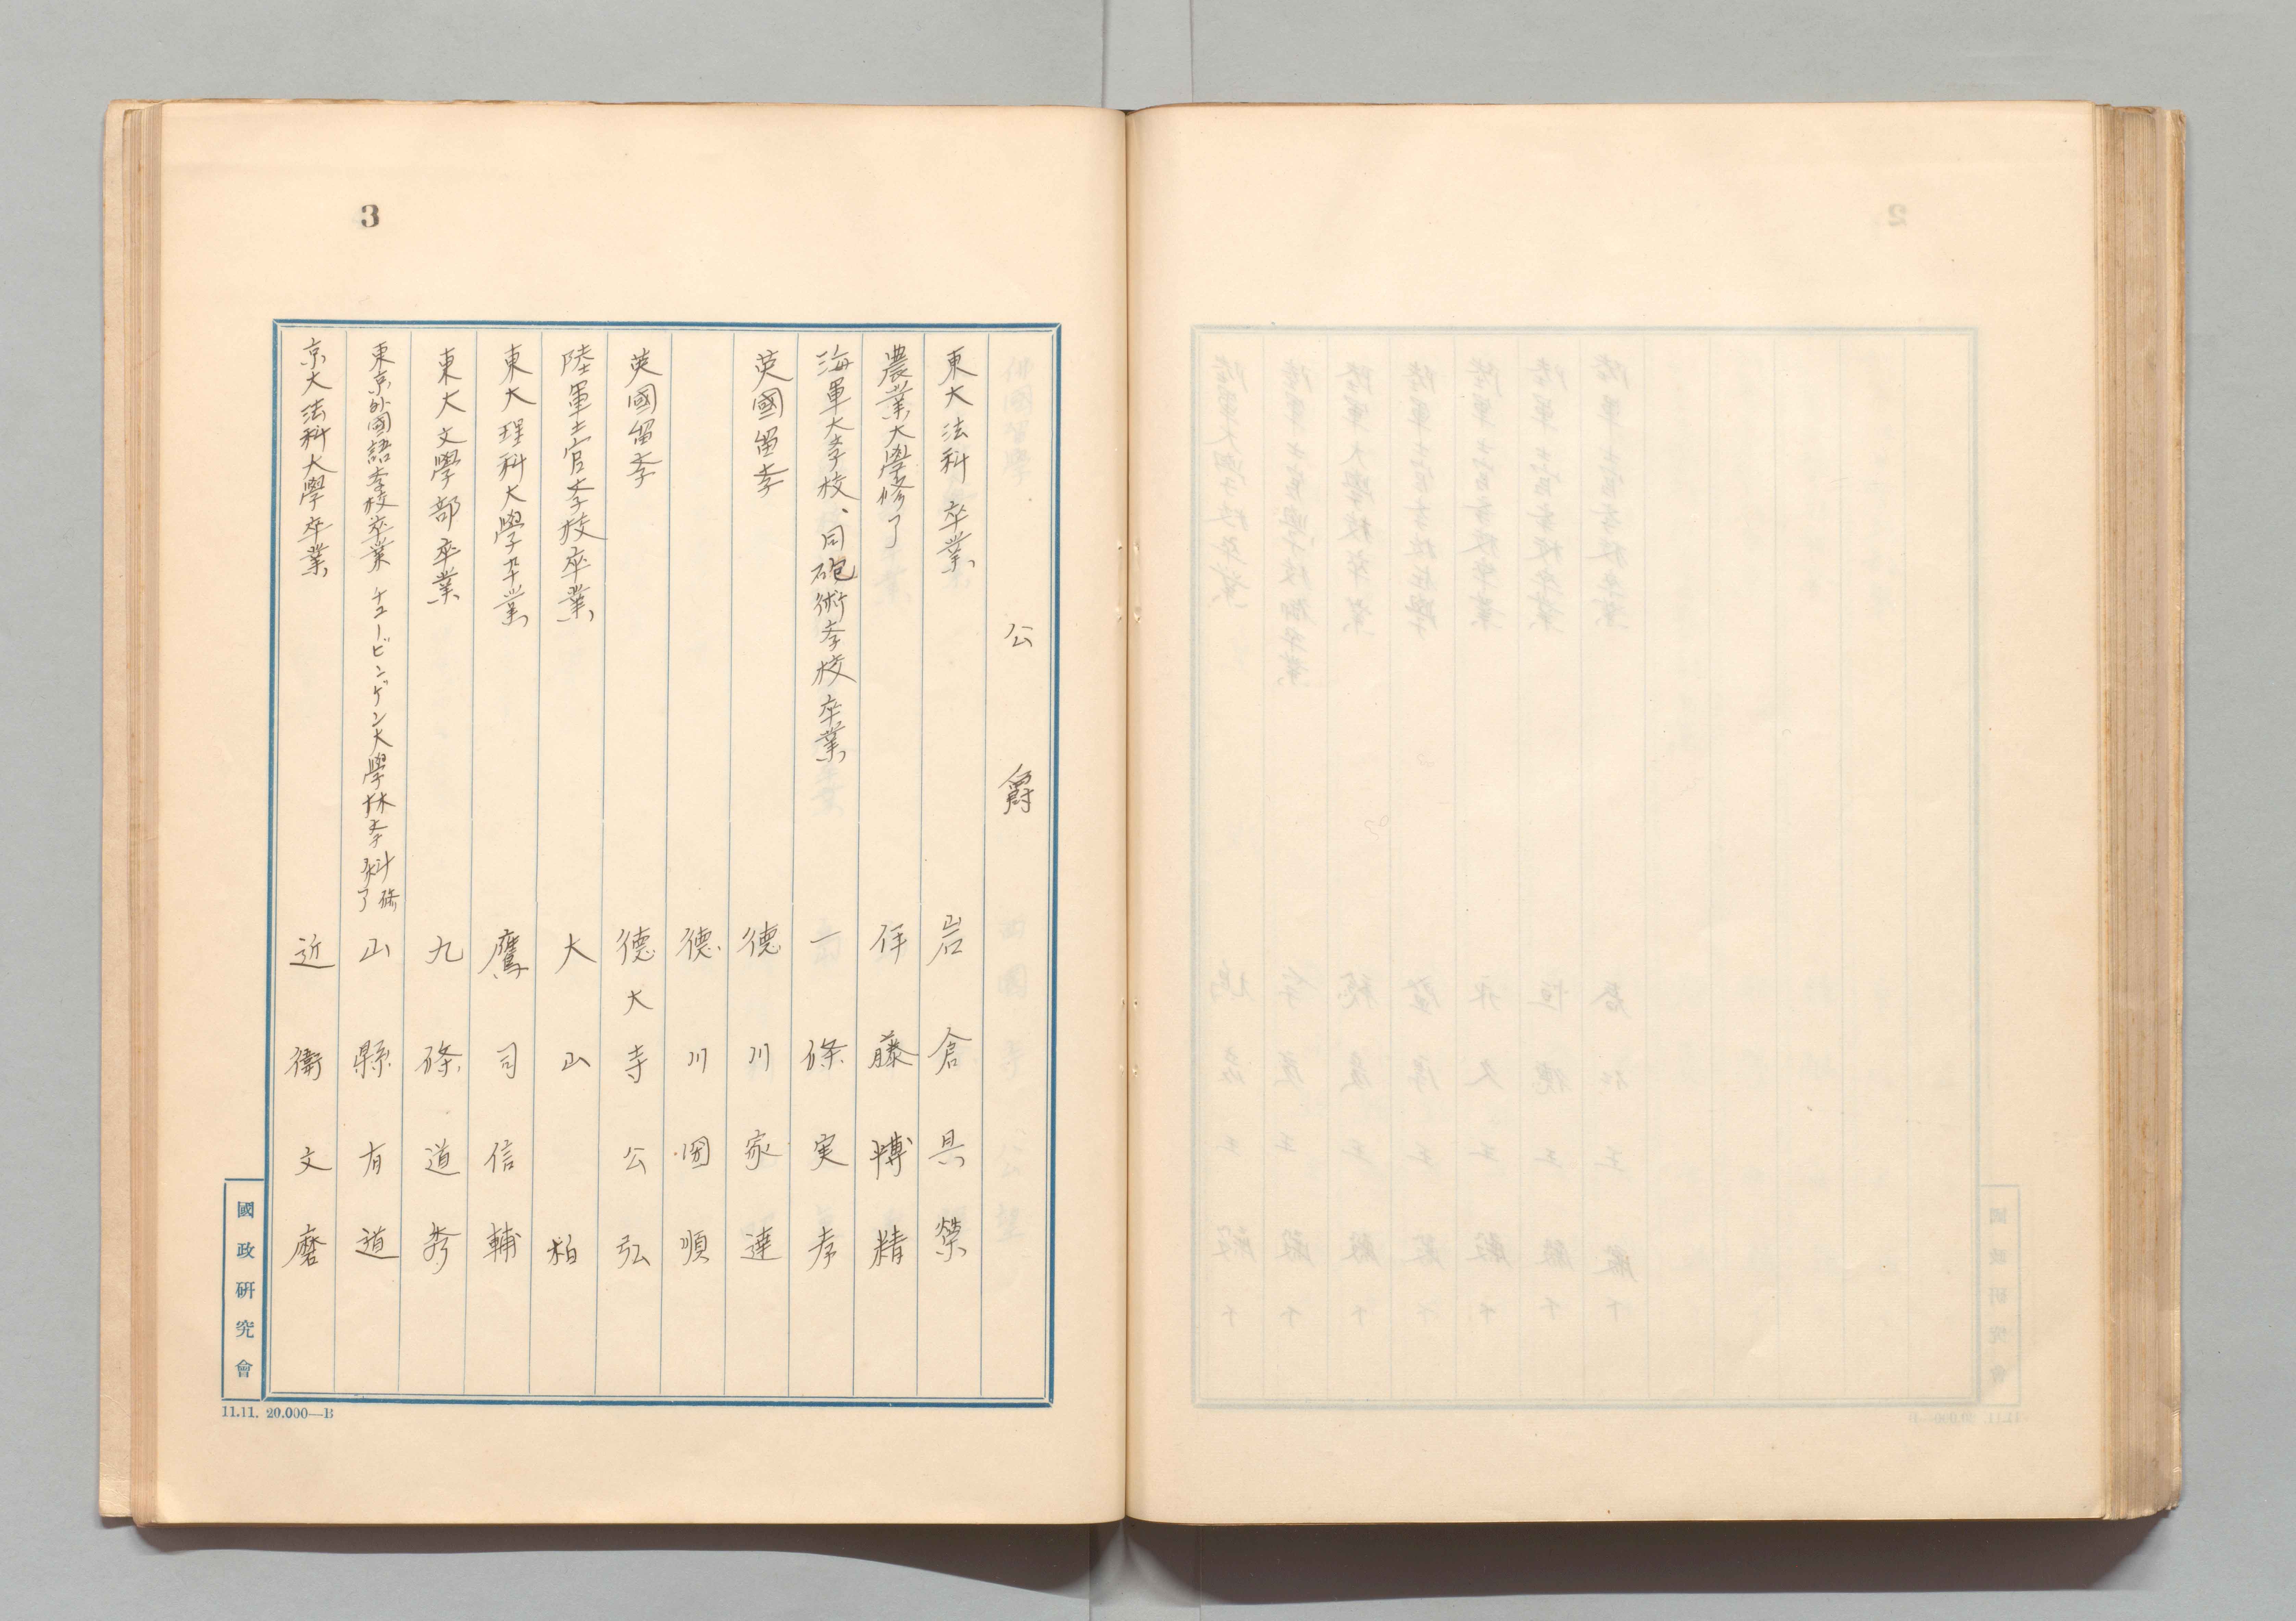 3
公爵
東大法科卒業 岩倉具榮
農業大學修了 伊藤博精
海軍大学校、同砲術学校卒業 一條実孝
英國留学 德川家達
德川圀順
英國留学 德大寺公弘
陸軍士官学校卒業 大山柏
東大理科大學卒業 鷹司信輔
東大文學部卒業 九條道秀
東京外國語学校卒業 チュービンゲン大學林学科修了 山縣有道
京大法科大學卒業 近衛文麿
國政研究會
11.11. 20.000—B